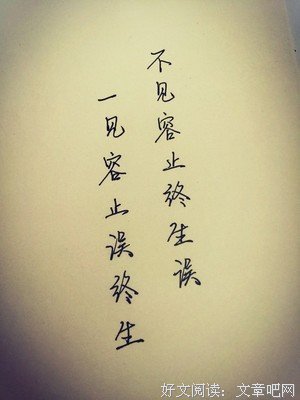 不见容止终生误
一见容止误终生
好文阅读：文章吧网